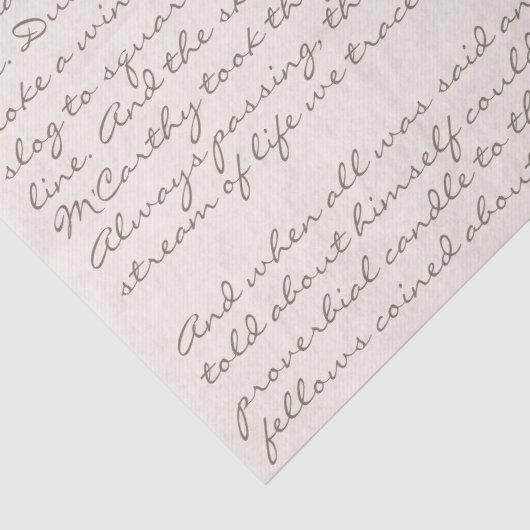 . Du
oke a win
slog to squar
line. And the sk
M'Carthy took th
Always passing, th
stream of life we trace
And when all was said an
told about himself could
proverbial candle to th
fellows coined about